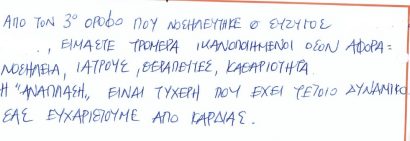 ΑΠΟ ΤΟΝ 3° ΟΡΟΦΟ ΠΟΥ ΝΟΣΗΛΕΥΤΗΚΕ Ο ΣΥΖΥΓΟΣ
., ΕΙΜΑΣΤΕ ΤΡΟΜΕΡΑ ΙΚΑΝΟΠΟΙΗΜΕΝΟΙ ΟΣΟΝ ΑΦΟΡΑ=
ΝΟΣΗΛΕΙΑ, ΙΑΤΡΟΥΣ, ΘΕΡΑΠΕΥΤΕΣ, ΚΑΘΑΡΙΟΤΗΤΑ.
Η "ΑΝΑΠΛΑΣΗ,, ΕΙΝΑΙ ΤΥΧΕΡΗ ΠΟΥ ΕΧΕΙ ΤΕΤΟΙΟ ΔΥΝΑΜΙΚΟ
ΣΑΣ ΕΥΧΑΡΙΣΤΟΥΜΕ ΑΠΟ ΚΑΡΔΙΑΣ.